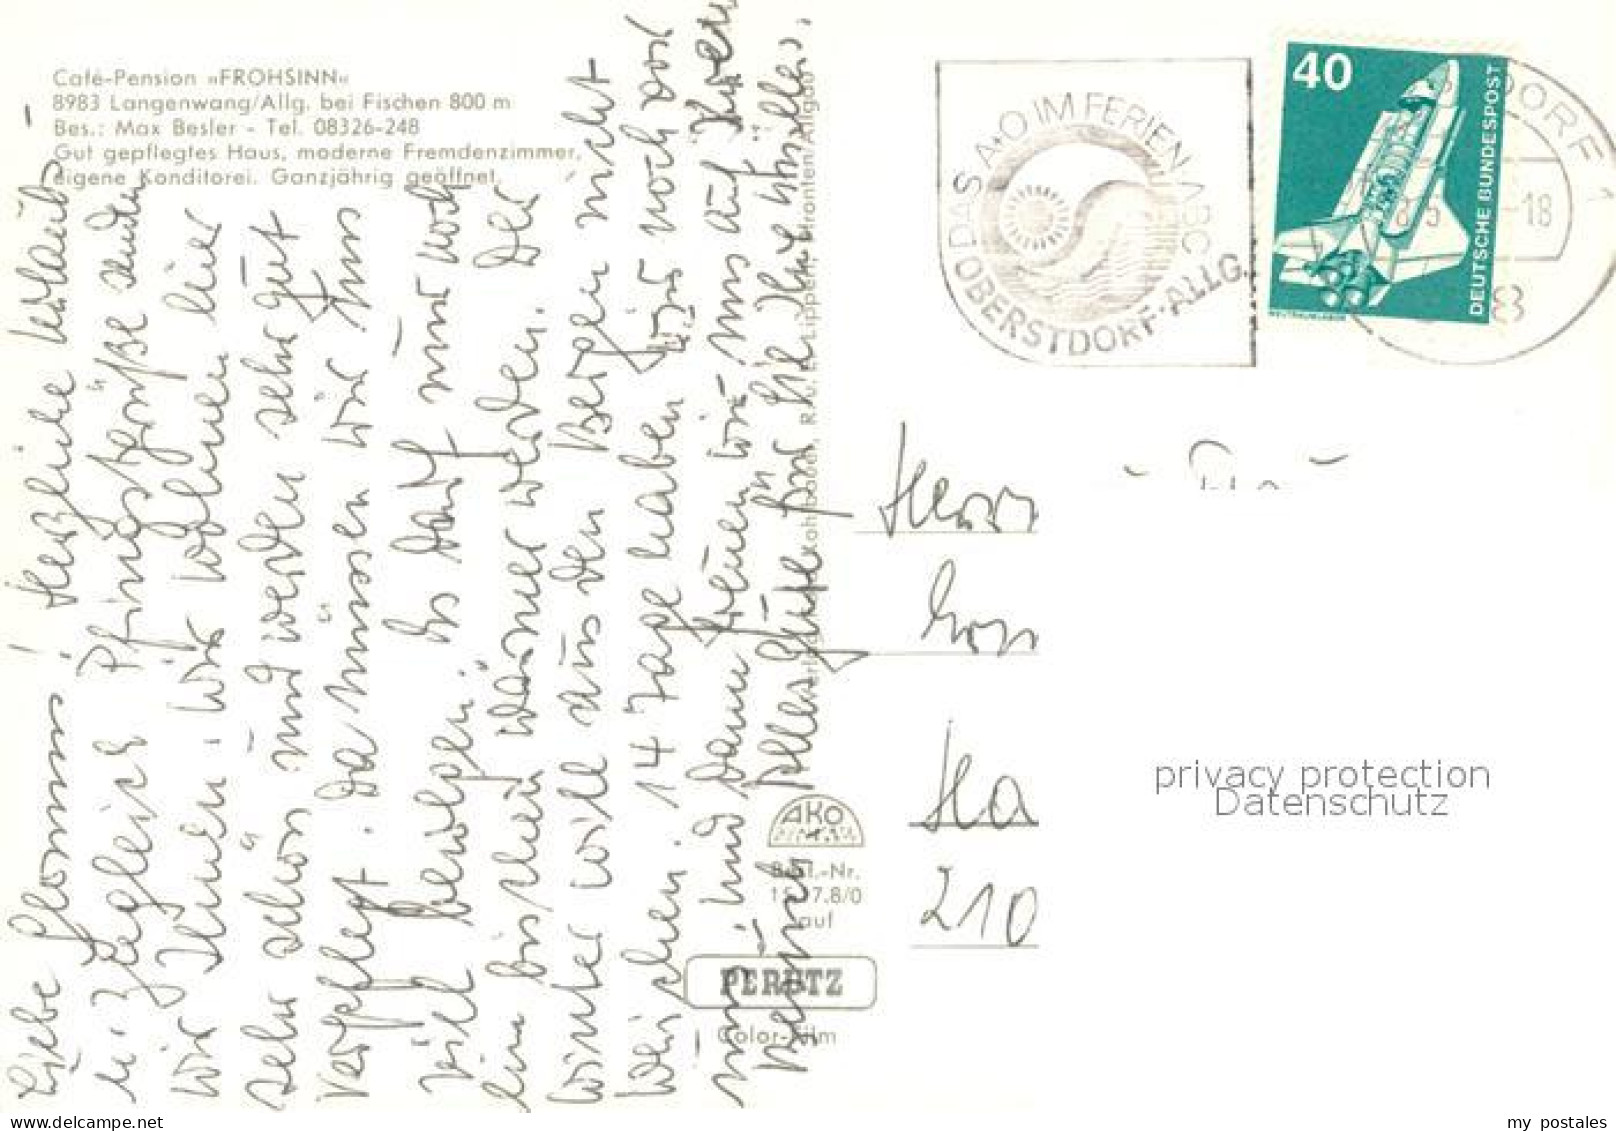 Café-Pension »FROHSINN«
8983 Langenwang/Allg. bei Fischen 800 m
Bes.: Max Besler - Tel. 08326-248
Gut gepflegtes Haus, moderne Fremdenzimmer,
eigene Konditorei. Ganzjährig geöffnet.
Liebe ! Herzliche Urlaubs-
u. zugleich Pfingstgrüße senden
wir Ihnen. Wir wohnen hier
sehr schön und werden sehr gut
verpflegt. Da müssen wir uns
viel bewegen." Es darf nur noch
ein bischen wärmer werden. Der
Winter will aus den Bergen nicht
weichen. 14 Tage haben wir noch vor
uns. Und dann freuen wir uns auf
Alles Gute für Sie. Ihre
DAS A+O IM FERIEN-ABC
OBERSTDORF·ALLG.
40
DEUTSCHE BUNDESPOST
WELTRAUMLABOR
DORF 1
-18
Herr
Ha
210
AKO
Best.-Nr.
auf
PERUTZ
Color-Film
privacy protection
Datenschutz
www.delcampe.net
my_postales